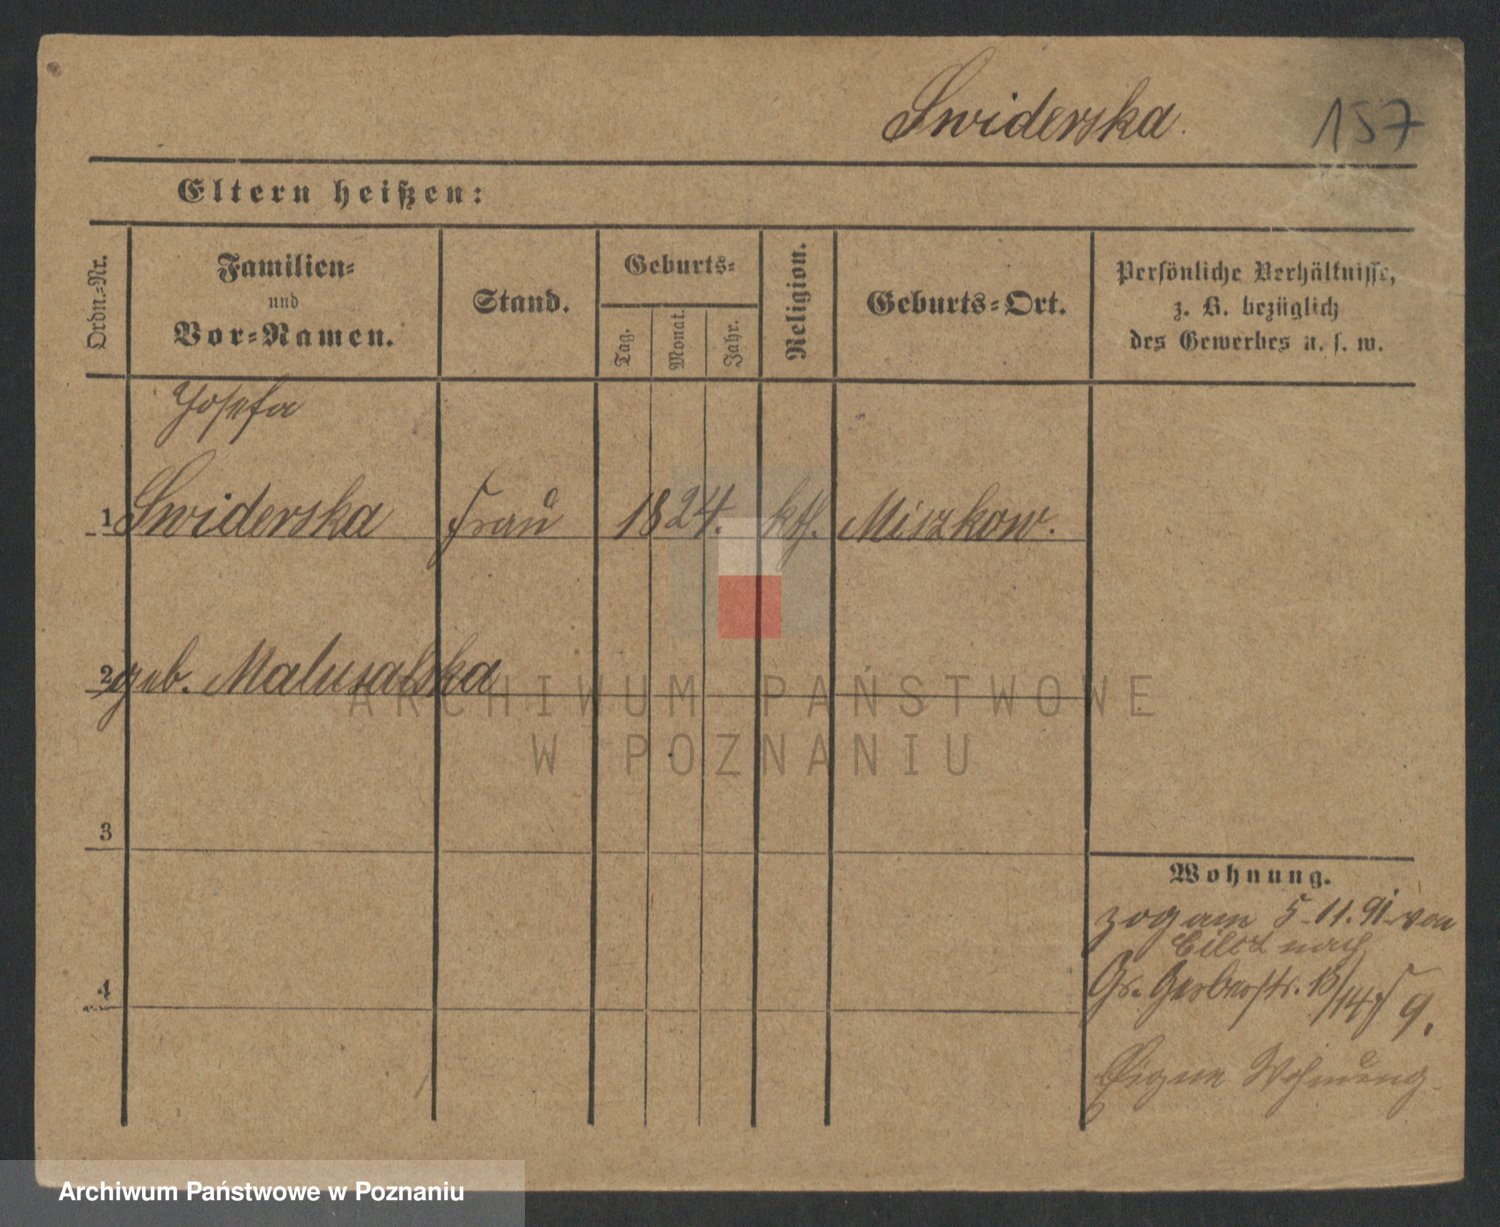 Swiderska.
157
Eltern heißen:
Ordn.-Nr.
Familien-
und
Vor-Namen.
Stand.
Geburts-
Tag.
Monat.
Jahr.
Religion.
Geburts-Ort.
Persönliche Verhältnisse,
z. B. bezüglich
des Gewerbes u. s. w.
Josefa
1 Swiderska Frau 1824. kth. Miszkow.
2 geb. Malusalska
3
4
Wohnung.
zog am 5-11.91 von
nach
Gr. Gerberstr. 13/14 9.
Eigene Wohnung.
ARCHIWUM PAŃSTWOWE
W POZNANIU
Archiwum Państwowe w Poznaniu